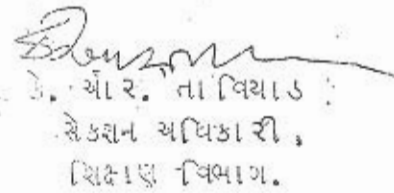 કે. આર. તાવિયાડ
સેકશન અધિકારી,
શિક્ષણ વિભાગ.